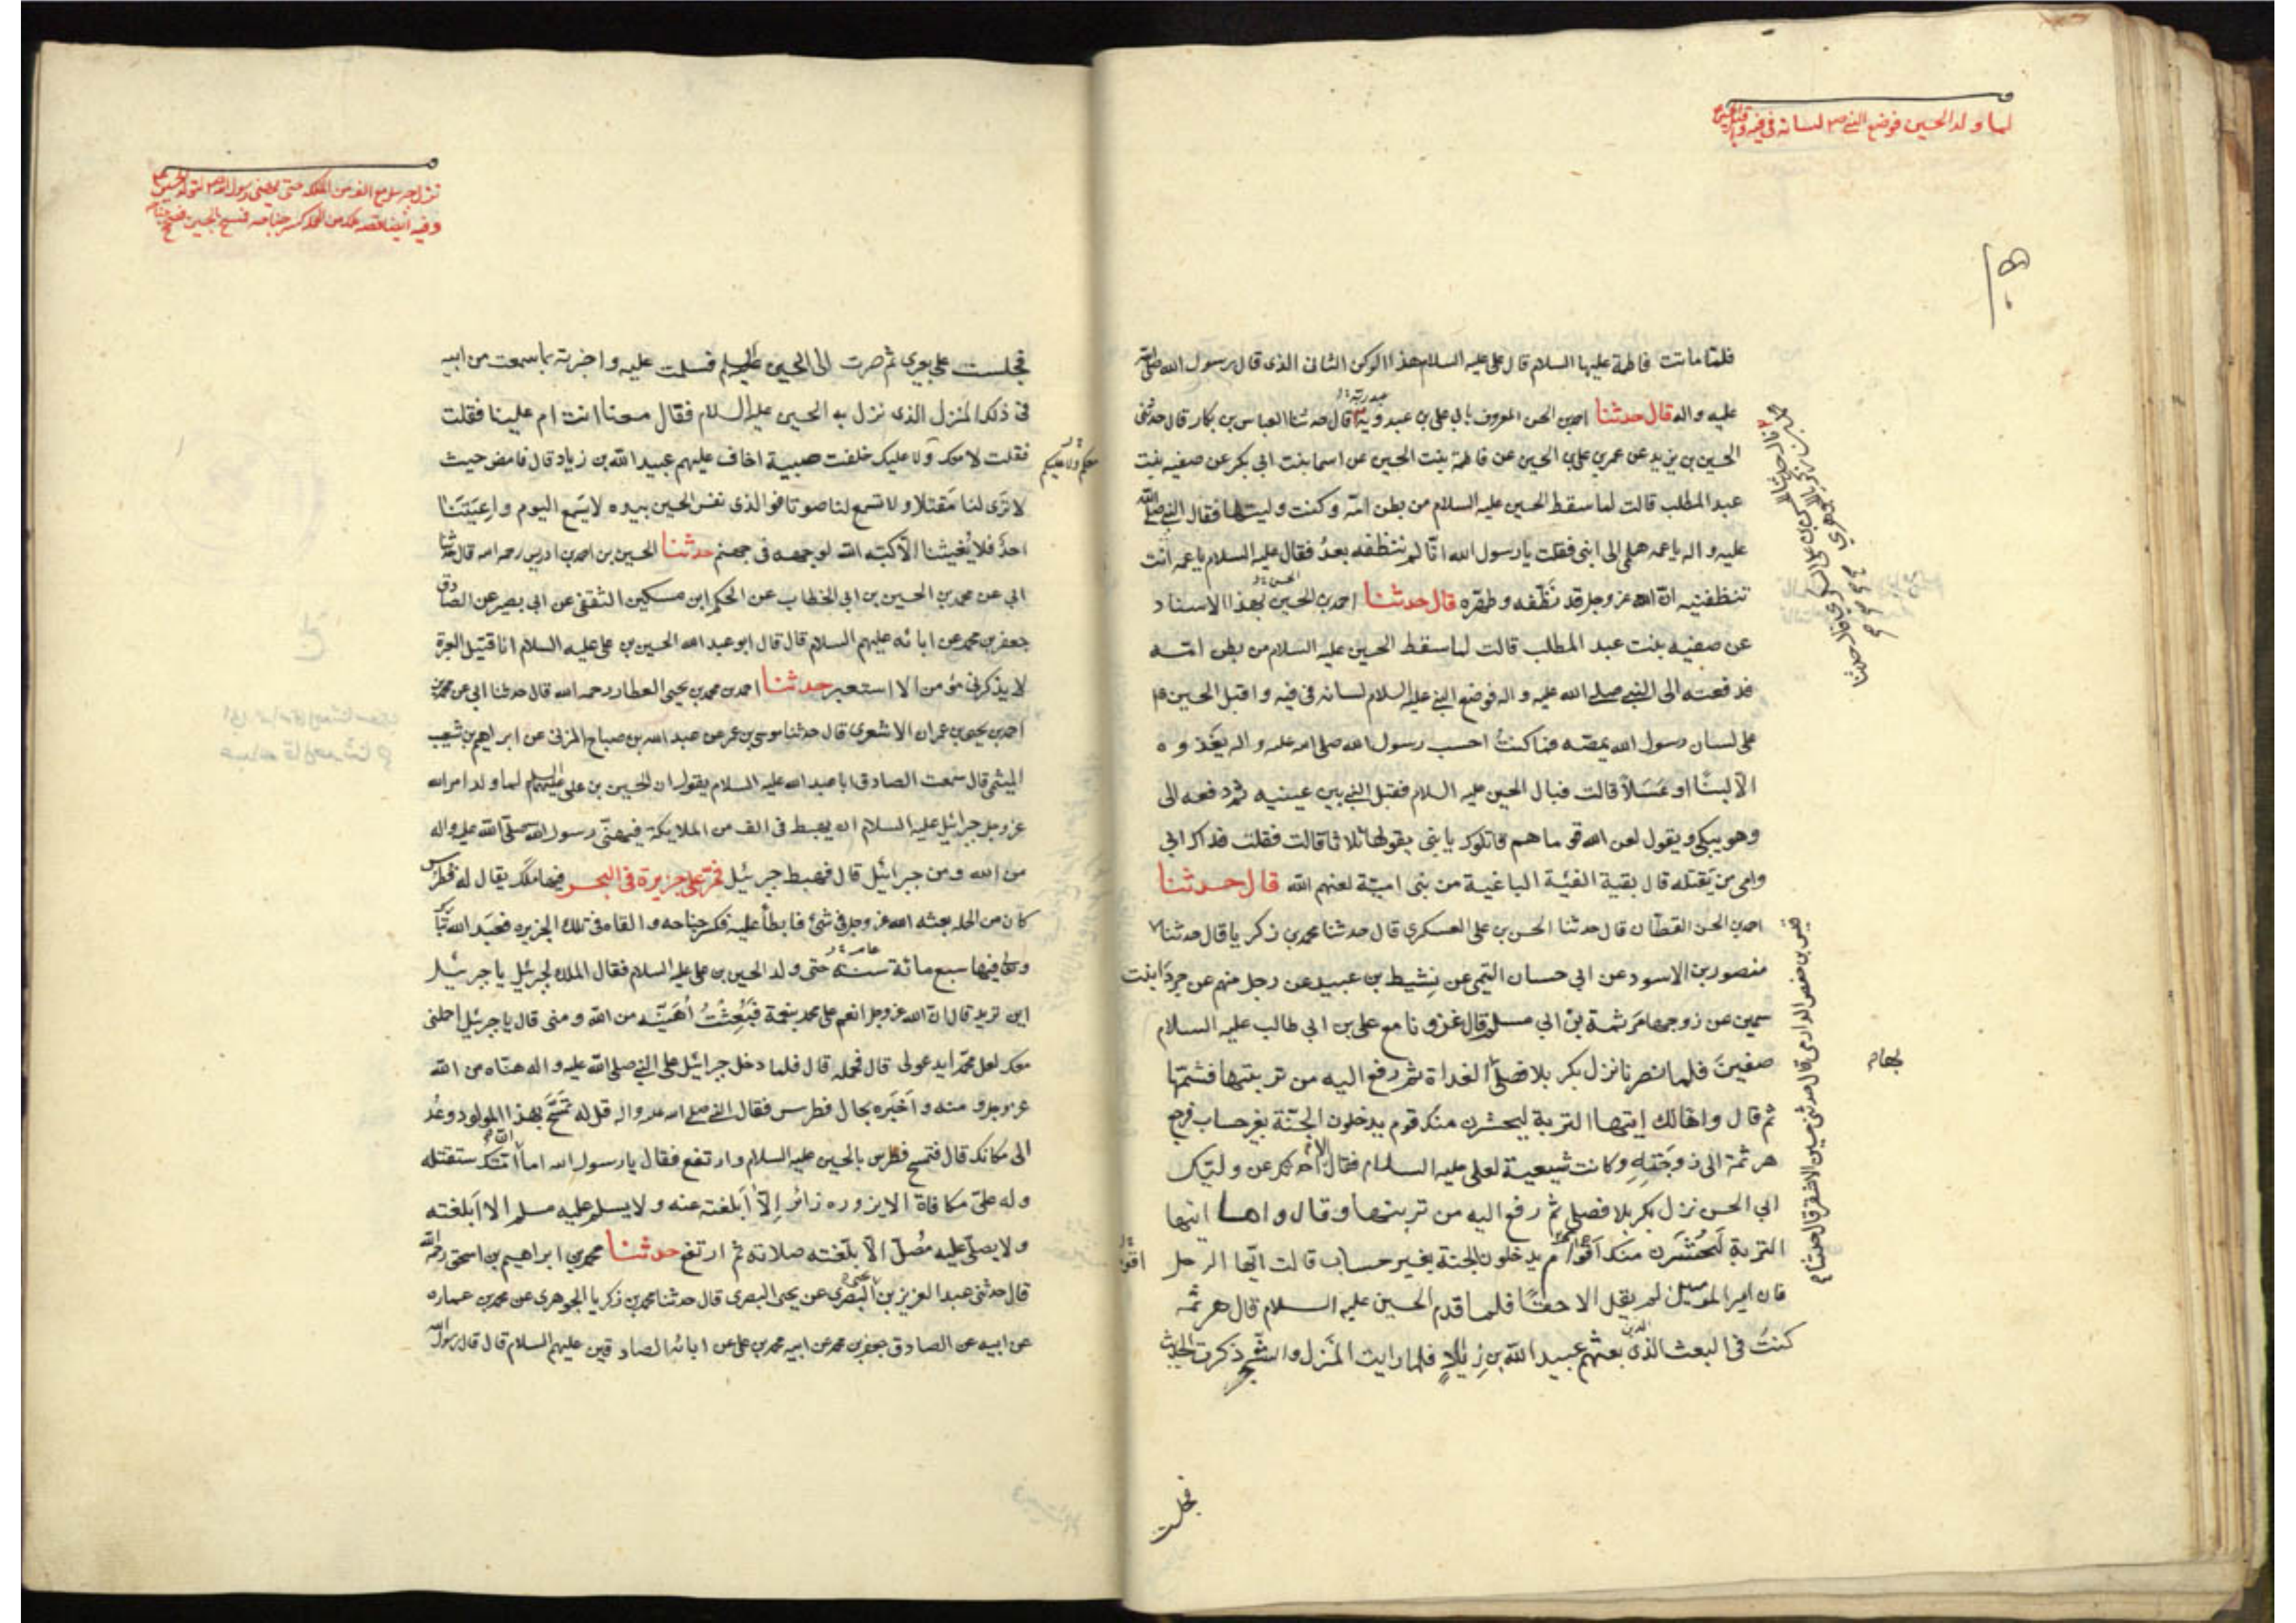 لما ولد الحسين فوضع النبي ص لسانه في فيه
فلمّا ماتت فاطمة عليها السلام قال علي عليه السلام هذا الركن الثاني الذي قال رسول الله صلى الله
عليه واله قال حدثنا احمد بن الحسن المعروف بابي علي بن عبدويه قال حدثنا العباس بن بكار قال حدثني
الحسين بن يزيد عن عمر بن علي بن الحسين عن فاطمة بنت الحسين عن اسما بنت ابي بكر عن صفيه بنت
عبد المطلب قالت لما سقط الحسين عليه السلام من بطن امّه وكنت وليتها فقال النبي صلى الله
عليه واله يا عمه هلمي الى ابني فقلت يا رسول الله انّا لم ننظفه بعدُ فقال عليه السلام يا عمه انت
تنظفنيه انّ الله عز وجل قد نَظّفه وطهّره قال حدثنا احمد بن الحسين بهذا الاسناد
عن صفيه بنت عبد المطلب قالت لما سقط الحسين عليه السلام من بطن امّه
فدفعته الى النبي صلى الله عليه واله فوضع النبي عليه السلام لسانه في فيه واقبل الحسين ع
على لسان رسول الله يمصّه فما كنتُ احسب رسول الله صلى الله عليه واله يغذوه
الّا لبنًا او عَسَلًا قالت فبال الحسين عليه السلام فقبل النبي بين عينيه ثم دفعه الى
وهو يبكي ويقول لعن الله قوما هم قاتلوك يا بني يقولها ثلاثا قالت فقلت فداك ابي
وامى من يَقتله قال بقية الفئة الباغية من بنى اميّة لعنهم الله قال حدثنا
احمد بن الحسن القطّان قال حدثنا الحسن بن علي العسكري قال حدثنا محمد بن زكريا قال حدثنا
منصور بن الاسود عن ابي حسان التيمي عن نِشيط بن عبيد عن رجل منهم عن جرداء بنت
سمين عن زوجها هرثمة بن ابي مسلم قال غزونا مع علي بن ابي طالب عليه السلام
صفين فلما انصرنا نزل بكربلا فصلّى الغداة ثم رفع اليه من تربتها فشمّها
ثم قال واها لك ايتها التربة ليحشرن منك قوم يدخلون الجنّة بغير حساب فرجع
هرثمة الى زوجته وكانت شيعية لعلي عليه السلام فقال الا احدثك عن وليّك
ابي الحسن نزل بكربلا فصلى ثم رفع اليه من تربتها وقال واها ايتها
التربة لَيُحْشَرن منك اقوام يدخلون الجنة بغير حساب قالت ايّها الرجل
فان امير المومنين لم يقل الا حقًّا فلما قدم الحسين عليه السلام قال هرثمه
كنتُ في البعث الذين بعثهم عبيد الله بن زياد فلما رايت المنزل والشجر ذكرت الحديث
فجلست
قيس بن حفص الدارمي قال حدثني حسين الاشقر قال حدثنا
نزل جبرئيل مع الف من الملك حتى يهنى رسول الله ص لتولد الحسين ع
وفيه ايضا قصه ملك من الملك كسر جناحه فتمسح بالحسين فصح جناحه
فجلست على بعيري ثم صرت الى الحسين عليه السلم فسلمت عليه واخبرته بما سمعت من ابيه
في ذلك المنزل الذي نزل به الحسين عليه السلام فقال معنا انت ام علينا فقلت
فقلت لا معك ولا عليك خلفت صبية اخاف عليهم عبيد الله بن زياد قال فامض حيث
لا ترى لنا مَقتلا ولا تسمع لنا صوتا فو الذي نفس الحسين بيده لا يسمع اليوم واعيتنا
احدٌ فلا يُغيثنا الّا كبّه الله لوجهه في جهنم حدثنا الحسين بن احمد بن ادريس رحمه الله قال حدثنا
ابي عن محمد بن الحسين بن ابي الخطاب عن الحكم ابن مسكين الثقفي عن ابي بصير عن الصادق
جعفر بن محمد عن ابائه عليهم السلام قال قال ابو عبد الله الحسين بن علي عليه السلام انا قتيل العبرة
لا يذكرني مؤمن الا استعبر حدثنا احمد بن محمد بن يحيى العطار رحمه الله قال حدثنا ابي عن محمد بن
احمد بن يحيى بن عمران الاشعري قال حدثنا موسى بن عمر عن عبد الله بن صباح المزني عن ابراهيم بن شعيب
الميثمي قال سمعت الصادق ابا عبد الله عليه السلام يقول ان الحسين بن علي عليهما السلم لما ولد امر الله
عز وجل جبرائيل عليه السلام ان يهبط في الف من الملايكة فيهنّي رسول الله صلى الله عليه واله
من الله ومن جبرائيل قال فهبط جبرئيل فمرّ على جزيرة في البحر فيها ملَك يقال له فطرس
كان من الحمله بعثه الله عز وجل في شئ فابطأ عليه فكسر جناحه والقاه في تلك الجزيره فعبَد الله تبارك
وتعالى فيها سبع مائة سنة حتى ولد الحسين بن علي عليه السلام فقال الملك لجبرئيل يا جبرئيل
اين تريد قال انّ الله عز وجل انعم على محمد بنعمة فبُعِثْتُ اُهَنّيه من الله ومنى قال يا جبرئيل احملني
معك لعل محمّدا يدعو لي قال فحمله قال فلما دخل جبرائيل على النبي صلى الله عليه واله هنّاه من الله
عز وجل ومنه واَخبَره بحال فطرس فقال النبي صلى الله عليه واله قل له تمَسّح بهذا المولود وعُد
الى مكانك قال فتمسح فطرس بالحسين عليه السلام وارتفع فقال يا رسول الله اما انّ امّتك ستقتله
وله عليّ مكافاة الا يزوره زائر اِلّا اَبلغته عنه ولا يسلم عليه مسلم الا اَبلغته
ولا يصلّي عليه مُصلّ الّا بلّغته صلاته ثم ارتفع حدثنا محمد بن ابراهيم بن اسحق رحمه الله
قال حدثني عبد العزيز بن يحيى البصري عن يحيى البصري قال حدثنا محمد بن زكريا الجوهري عن محمد بن عماره
عن ابيه عن الصادق جعفر بن محمد عن ابيه محمد بن علي عن ابائه الصادقين عليهم السلام قال قال رسول الله
معكم ولا عليكم